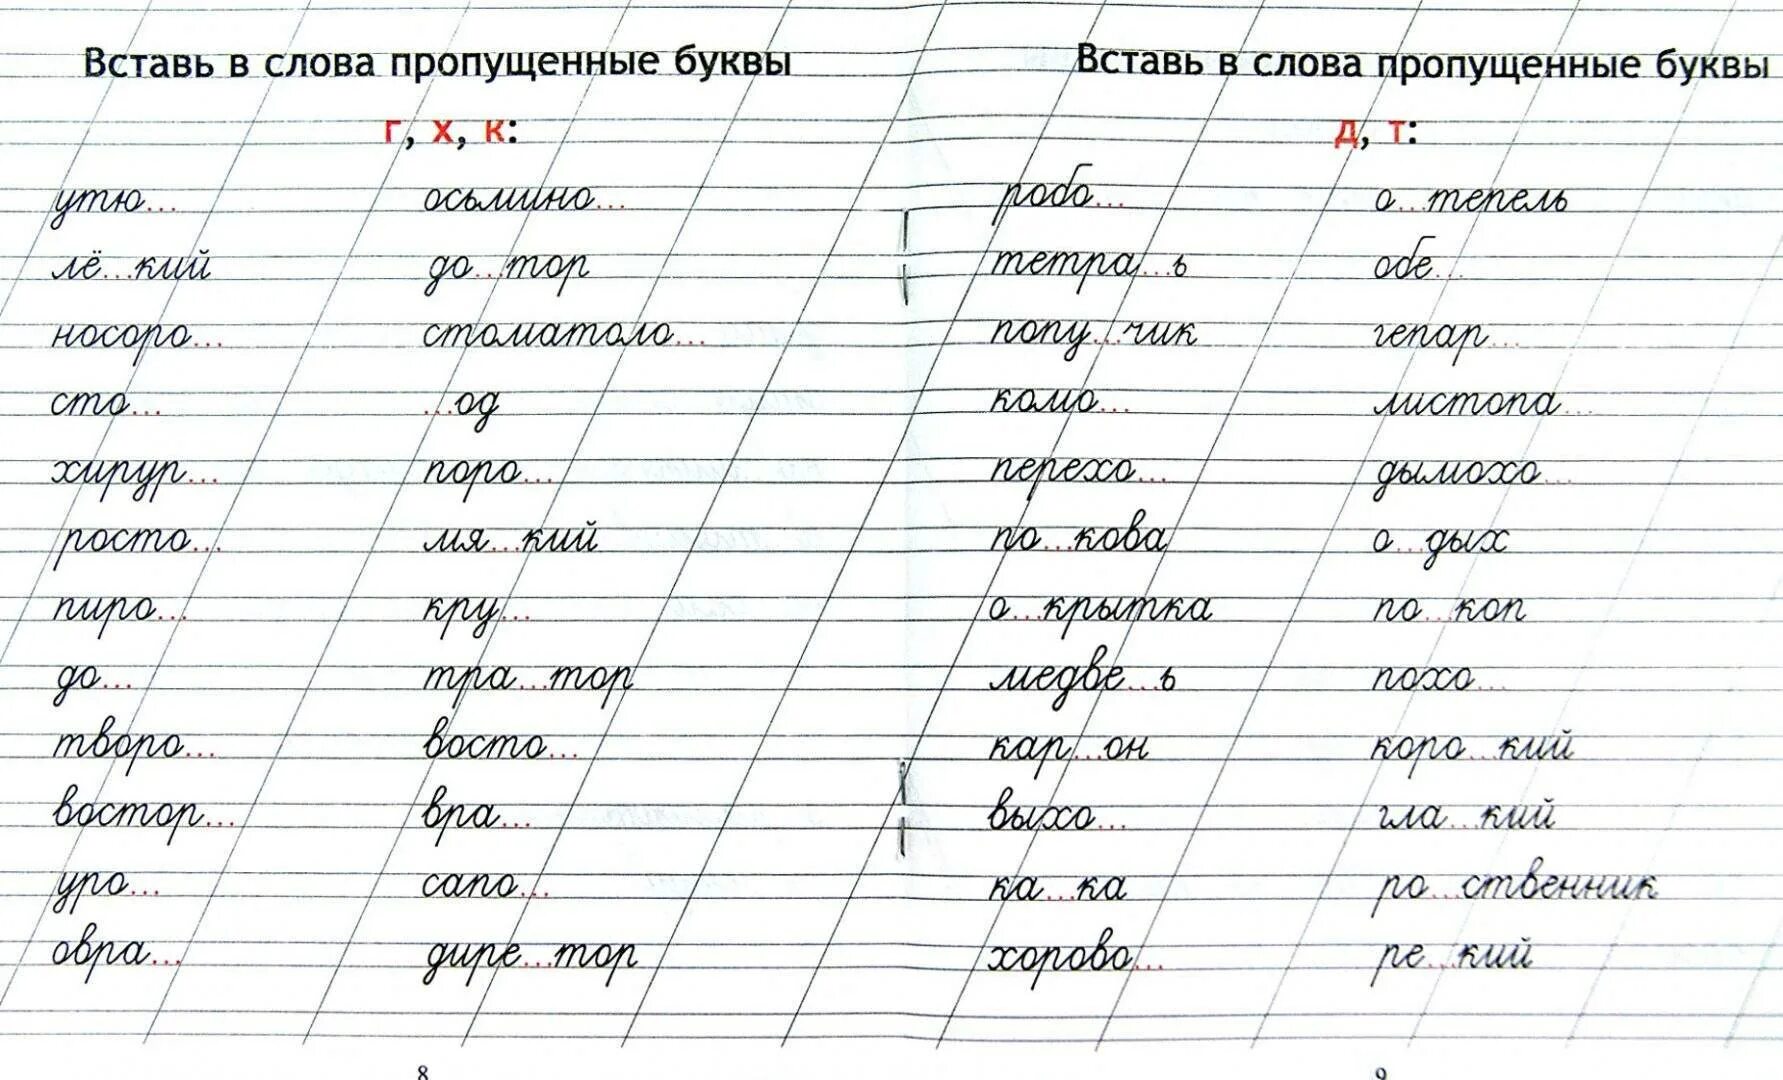 Вставь в слова пропущенные буквы
г, х, к:
утю... осьмино...
лё...кий до...тор
носоро... стоматоло...
сто... ...од
хирур... поро...
росто... мя...кий
пиро... кру...
до... тра...тор
творо... восто...
востор... вра...
уро... сапо...
овра... дире...тор
8
Вставь в слова пропущенные буквы
д, т:
робо... о...тепель
тетра...ь обе...
попу...чик гепар...
комо... листопа...
перехо... дымохо...
по...кова о...дых
о...крытка по...коп
медве...ь похо...
кар...он коро...кий
выхо... гла...кий
ка...ка ро...ственник
хорово... ре...кий
9